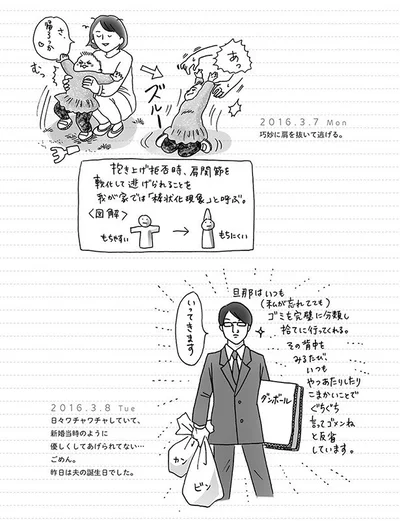 さ、
帰ろっか
むっ
あっ
ズルー
2016.3.7 Mon
巧妙に肩を抜いて逃げる。
抱き上げ拒否時、肩関節を
軟化して逃げられることを
我が家では「棒状化現象」と呼ぶ。
〈図解〉
もちやすい
もちにくい
いってきます
旦那はいつも
(私が忘れてても)
ゴミを完璧に分類し
捨てに行ってくれる。
その背中を
みるたび、
いつも
やつあたりしたり
こまかいことで
ぐちぐち
言ってゴメンね
と反省
しています。
ダンボール
カン
ビン
2016.3.8 Tue
日々ワチャワチャしていて、
新婚当時のように
優しくしてあげられてない…
ごめん。
昨日は夫の誕生日でした。